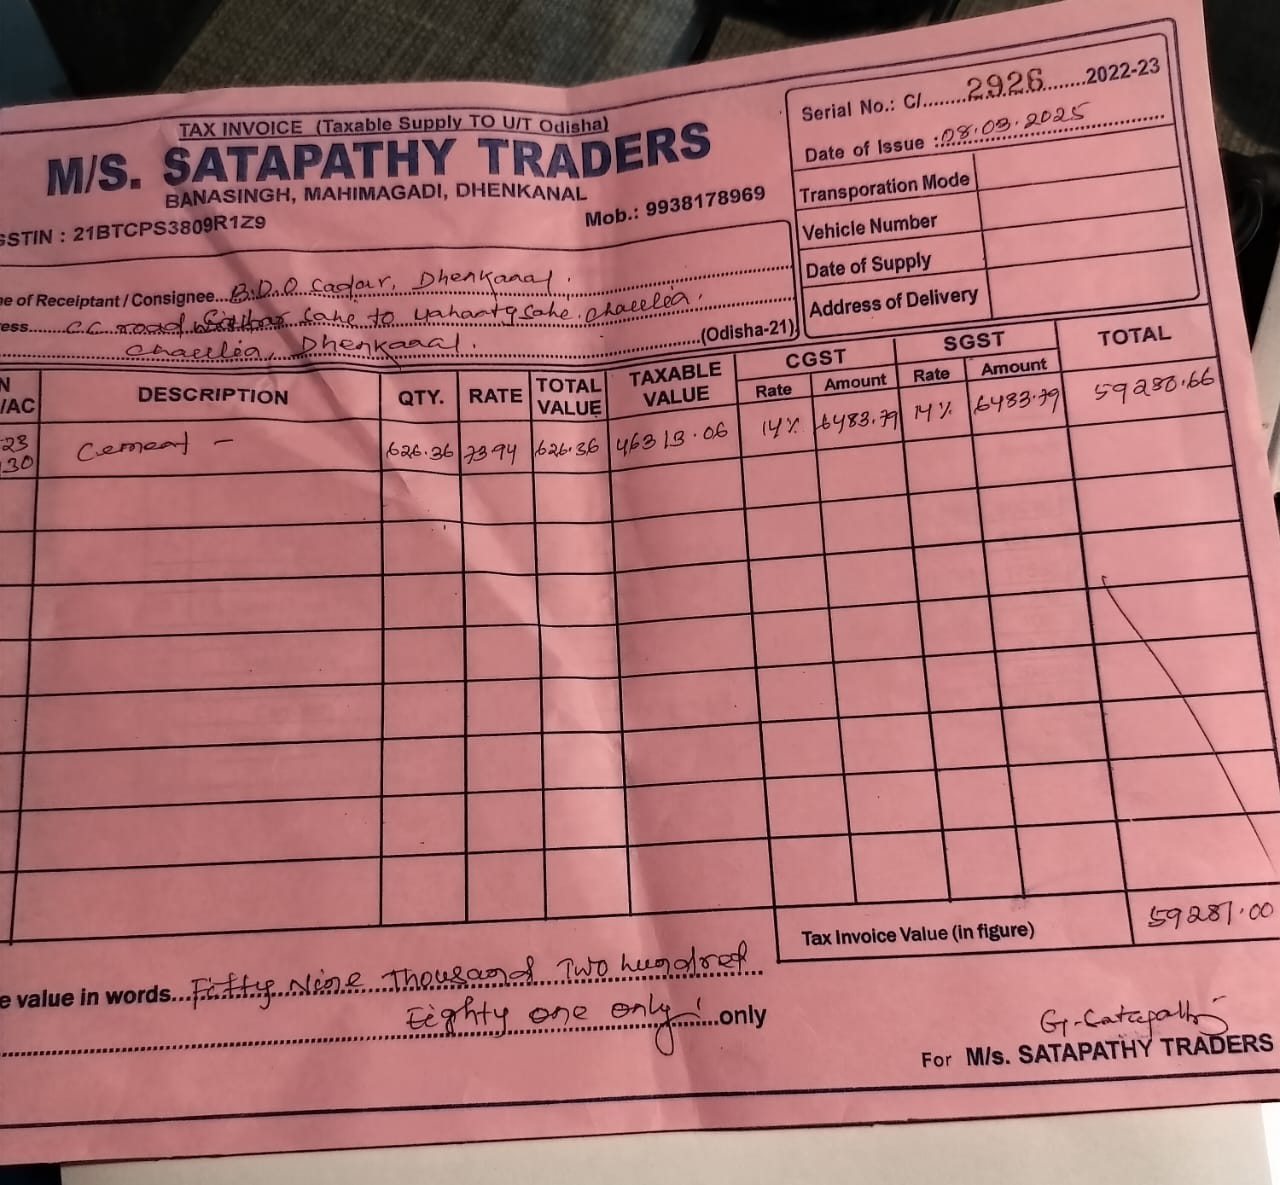 TAX INVOICE (Taxable Supply TO U/T Odisha)
M/S. SATAPATHY TRADERS
BANASINGH, MAHIMAGADI, DHENKANAL
GSTIN : 21BTCPS3809R1Z9
Mob.: 9938178969
Serial No.: C/........2926........2022-23
Date of Issue :08.03.2025
Transporation Mode
Vehicle Number
Date of Supply
Address of Delivery
e of Receiptant / Consignee...B.D.O Sadar, Dhenkanal.
ess...... C.C. road Sahe to Sahe.
Dhenkanal.
(Odisha-21)
N
/AC
DESCRIPTION
QTY.
RATE
TOTAL VALUE
TAXABLE VALUE
CGST
Rate
Amount
SGST
Rate
Amount
TOTAL
23
30
Cement -
626.36
73.94
626.36
46313.06
14%
6483.79
14%
6483.79
59280.66
Tax Invoice Value (in figure)
59281.00
e value in words...Fifty Nine Thousand Two hundred
Eighty one only!...only
G. Satapathy
For M/s. SATAPATHY TRADERS